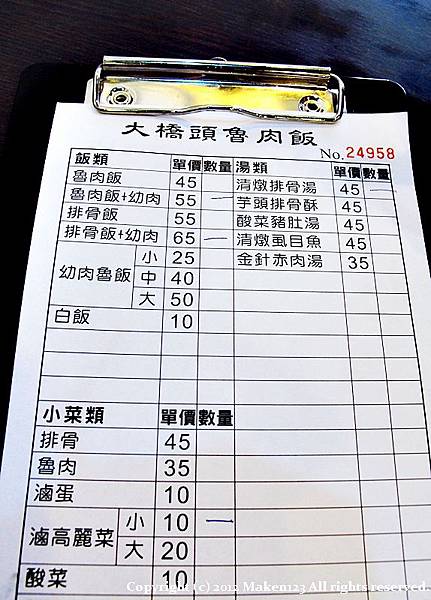 大橋頭魯肉飯
No. 24958
飯類 單價 數量 湯類 單價 數量
魯肉飯 45 清燉排骨湯 45 一
魯肉飯+幼肉 55 一 芋頭排骨酥 45
排骨飯 55 酸菜豬肚湯 45
排骨飯+幼肉 65 一 清燉虱目魚 45
幼肉魯飯 小 25 金針赤肉湯 35
中 40
大 50
白飯 10
小菜類 單價 數量
排骨 45
魯肉 35
滷蛋 10
滷高麗菜 小 10 一
大 20
酸菜 10
Copyright (c) 2012 Maken123 All rights reserved.